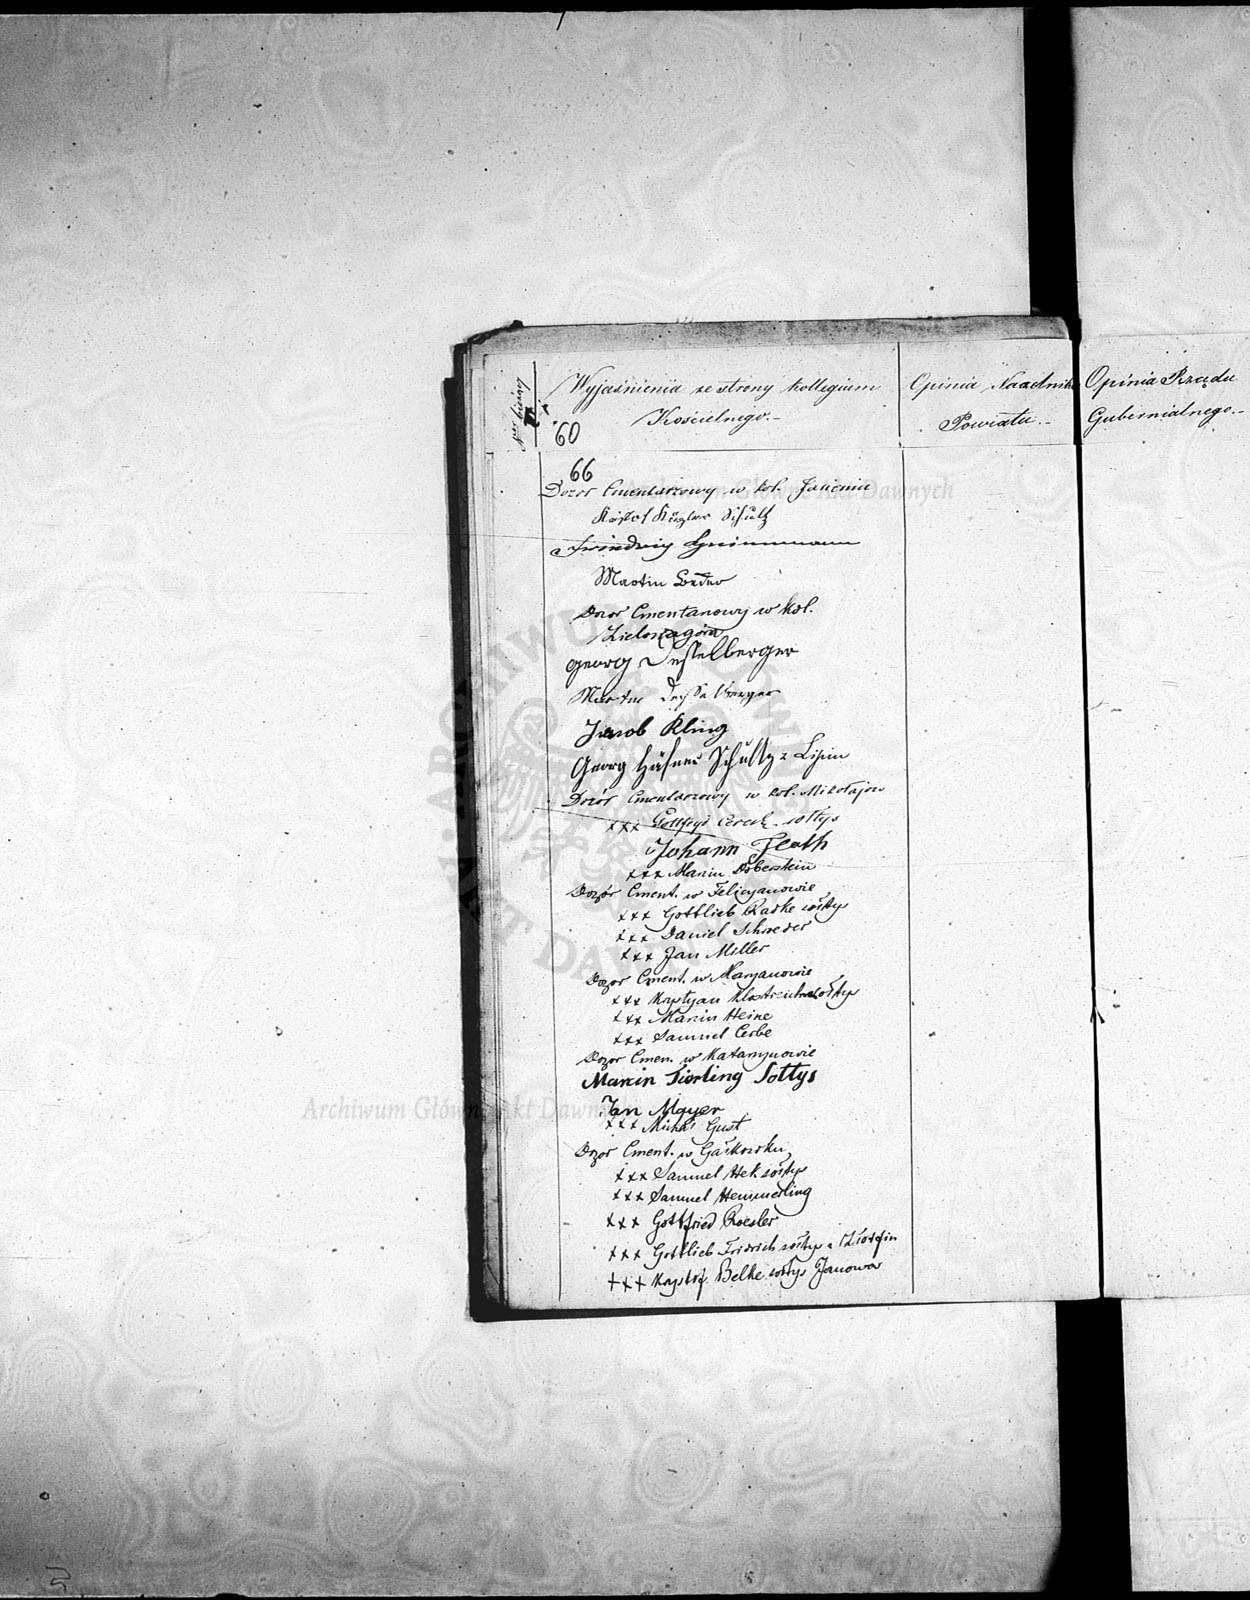 Wyjaśnienia ze strony kollegium
Kościelnego.-
Opinia Naczelnika
Powiatu.-
Opinia Rządu
Gubernialnego.-
60
66
Dozór Cmentarzowy w kol.
Schultz
Friedrig Grünnmann
Martin
Dozor Cmentarzowy w Kol.
Zielonagóra
georg Desselberger
Martin Desselberger
Jacob Kling
Georg Häfner Schultz z Lipin
Dozór Cmentarzowy w kol. Mikołajow
xxx Gottfryd sołtys
Johann Flath
xxx Marcin Doberstein
Dozór Cment. w Felicyanowie
xxx Gottlieb Radke sołtys
xxx Daniel Schroeder
xxx Jan Miller
Dozor Cment. w Maryanowie
xxx Krystyan sołtys
xxx Marcin Heine
xxx Samuel Cerbe
Dozor Cmen. w Katarzynowie
Marcin Sierling Sołtys
Jan Mayer
xxx Michał Gust
Dozór Cment. w Gałkowku
xxx Samuel Hek sołtys
xxx Samuel Hemmerling
xxx Gottfried Roesler
xxx Gottlieb Fridrich sołtys z
xxx Krystof. Belke sołtys Janowa
Archiwum Główne Akt Dawnych
Archiwum Główne Akt Dawnych